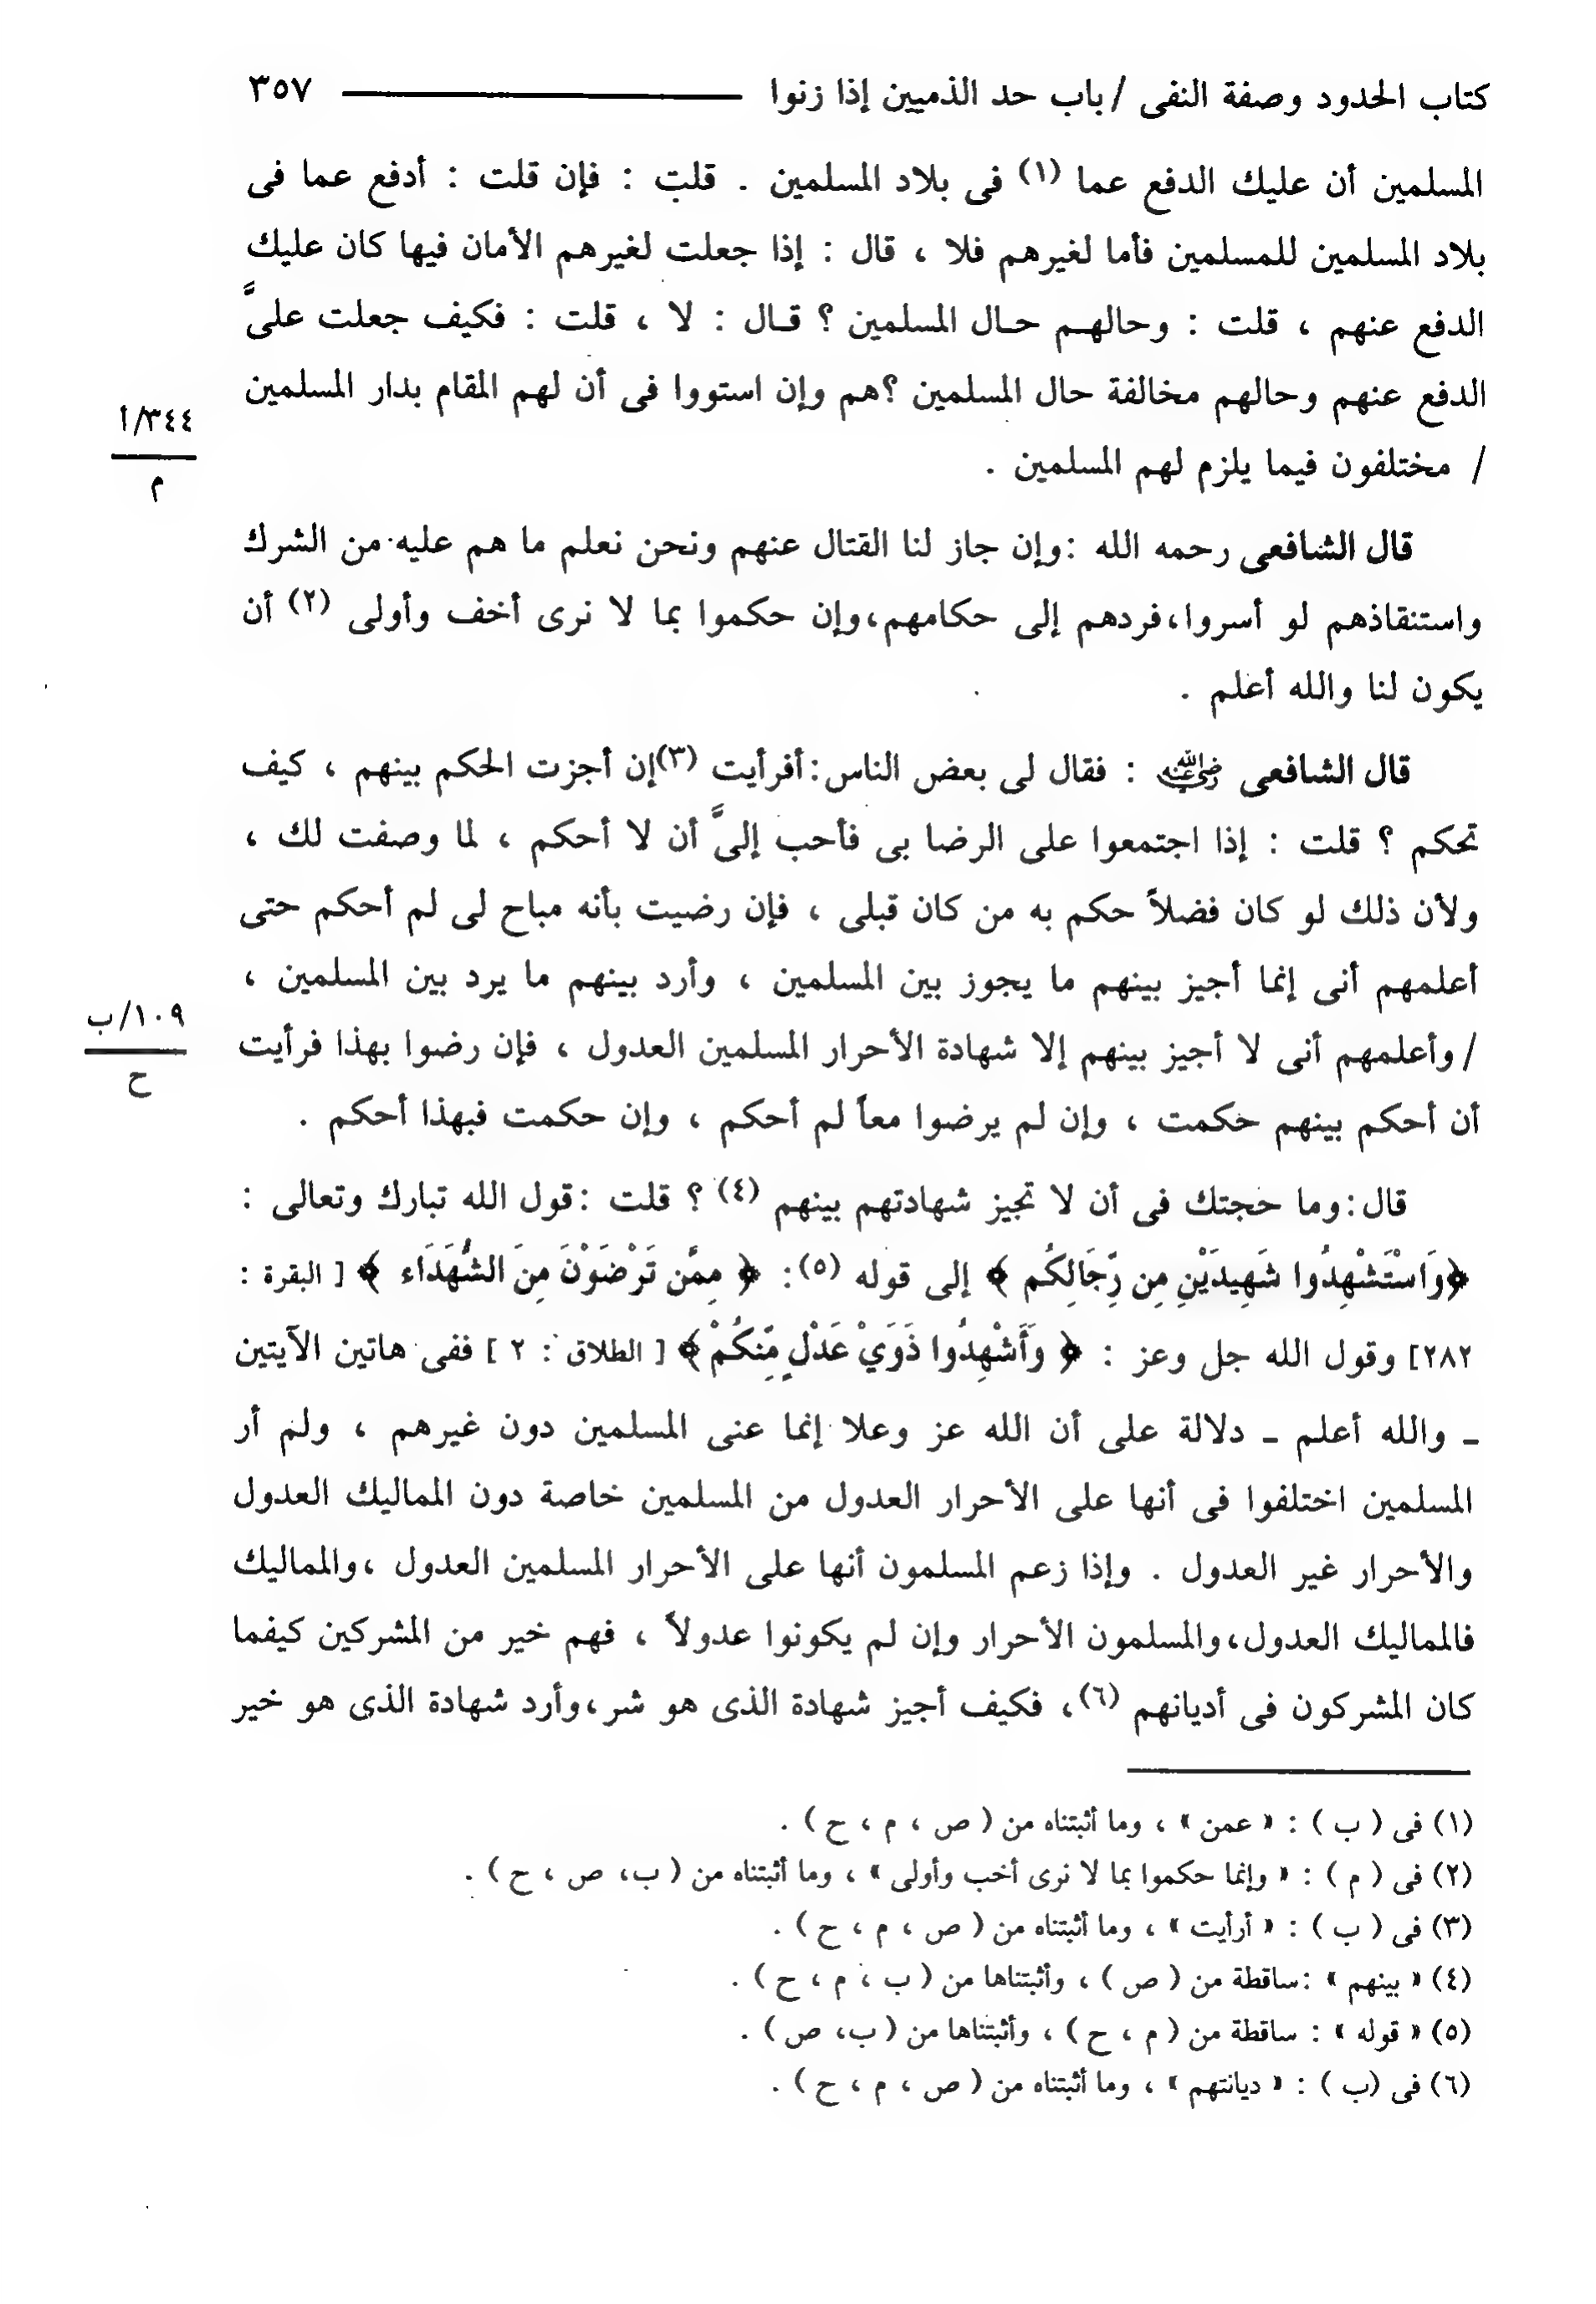 كتاب الحدود وصفة النفى / باب حد الذميين إذا زنوا ـــــــــــــــ ٣٥٧
المسلمين أن عليك الدفع عما (١) فى بلاد المسلمين . قلت : فإن قلت : أدفع عما فى
بلاد المسلمين للمسلمين فأما لغيرهم فلا ، قال : إذا جعلت لغيرهم الأمان فيها كان عليك
الدفع عنهم ، قلت : وحالهـم حـال المسلمين ؟ قـال : لا ، قلت : فكيف جعلت علىَّ
الدفع عنهم وحالهم مخالفة حال المسلمين ؟هم وإن استووا فى أن لهم المقام بدار المسلمين
٣٤٤/أ
م
/ مختلفون فيما يلزم لهم المسلمين .
قال الشافعى رحمه الله :وإن جاز لنا القتال عنهم ونحن نعلم ما هم عليه من الشرك
واستنقاذهم لو أسروا،فردهم إلى حكامهم،وإن حكموا بما لا نرى أخف وأولى (٢) أن
يكون لنا والله أعلم .
قال الشافعى رضي الله عنه : فقال لى بعض الناس:أفرأيت (٣)إن أجزت الحكم بينهم ، كيف
تحكم ؟ قلت : إذا اجتمعوا على الرضا بى فأحب إلىَّ أن لا أحكم ، لما وصفت لك ،
ولأن ذلك لو كان فضلاً حكم به من كان قبلى ، فإن رضيت بأنه مباح لى لم أحكم حتى
أعلمهم أنى إنما أجيز بينهم ما يجوز بين المسلمين ، وأرد بينهم ما يرد بين المسلمين ،
١٠٩/ب
ح
/ وأعلمهم أنى لا أجيز بينهم إلا شهادة الأحرار المسلمين العدول ، فإن رضوا بهذا فرأيت
أن أحكم بينهم حكمت ، وإن لم يرضوا معاً لم أحكم ، وإن حكمت فبهذا أحكم .
قال:وما حجتك فى أن لا تجيز شهادتهم بينهم (٤) ؟ قلت :قول الله تبارك وتعالى :
﴿وَاسْتَشْهِدُوا شَهِيدَيْنِ مِن رِّجَالِكُم ﴾ إلى قوله (٥): ﴿ مِمَّن تَرْضَوْنَ مِنَ الشُّهَدَاء ﴾ [ البقرة :
٢٨٢] وقول الله جل وعز : ﴿ وَأَشْهِدُوا ذَوَيْ عَدْلٍ مِّنكُمْ ﴾ [ الطلاق : ٢ ] ففى هاتين الآيتين
ـ والله أعلم ـ دلالة على أن الله عز وعلا إنما عنى المسلمين دون غيرهم ، ولم أر
المسلمين اختلفوا فى أنها على الأحرار العدول من المسلمين خاصة دون المماليك العدول
والأحرار غير العدول . وإذا زعم المسلمون أنها على الأحرار المسلمين العدول ،والمماليك
فالمماليك العدول،والمسلمون الأحرار وإن لم يكونوا عدولاً ، فهم خير من المشركين كيفما
كان المشركون فى أديانهم (٦)، فكيف أجيز شهادة الذى هو شر،وأرد شهادة الذى هو خير
(١) فى ( ب ) : « عمن » ، وما أثبتناه من ( ص ، م ، ح ) .
(٢) فى ( م ) : « وإنما حكموا بما لا نرى أخب وأولى » ، وما أثبتناه من ( ب، ص ، ح ) .
(٣) فى ( ب ) : « أرأيت » ، وما أثبتناه من ( ص ، م ، ح ) .
(٤) « بينهم » :ساقطة من ( ص ) ، وأثبتناها من ( ب ، م ، ح ) .
(٥) « قوله » : ساقطة من ( م ، ح ) ، وأثبتناها من ( ب، ص ) .
(٦) فى (ب ) : « ديانتهم » ، وما أثبتناه من ( ص ، م ، ح ) .